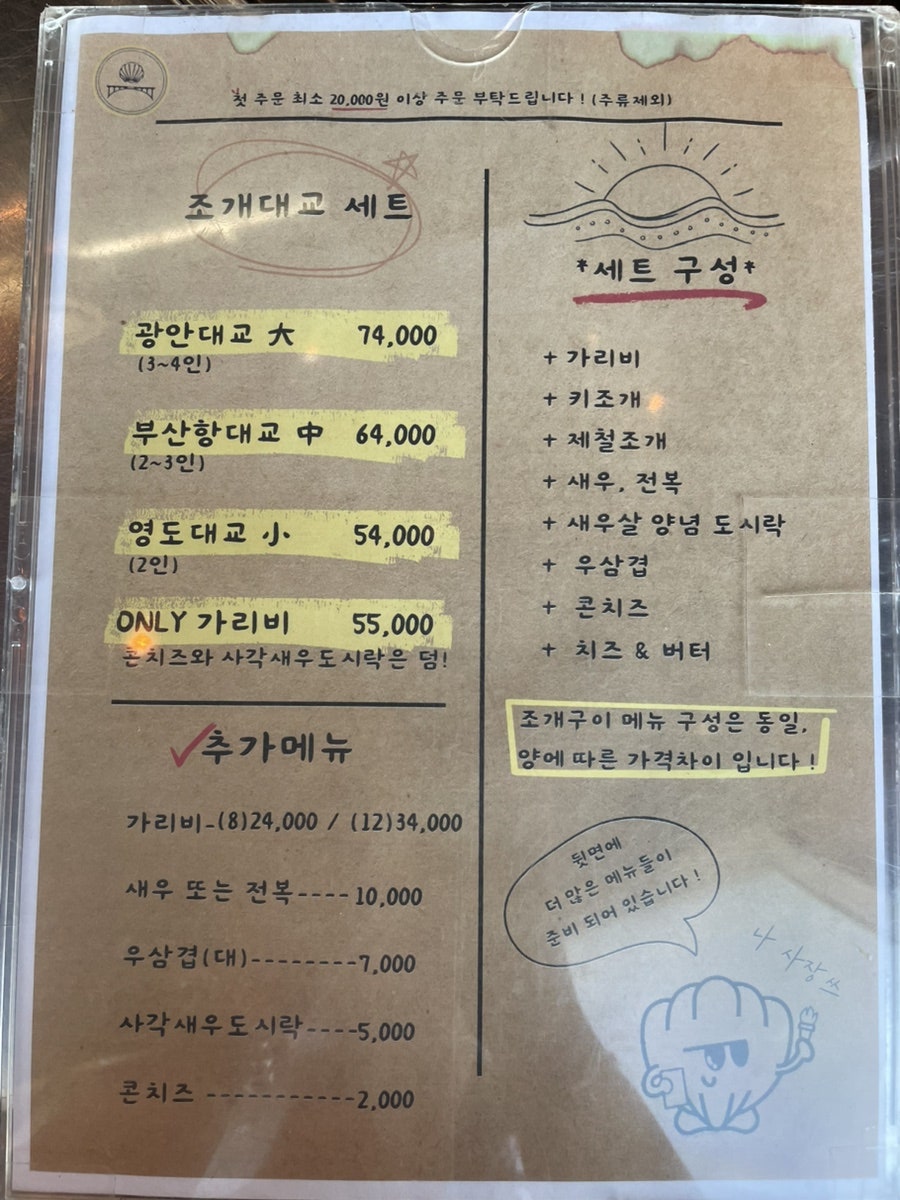 첫 주문 최소 20,000원 이상 주문 부탁드립니다! (주류제외)
조개대교 세트
광안대교 大 74,000
(3~4인)
부산항대교 中 64,000
(2~3인)
영도대교 小 54,000
(2인)
ONLY 가리비 55,000
콘치즈와 사각새우도시락은 덤!
추가메뉴
가리비-(8)24,000 / (12)34,000
새우 또는 전복----10,000
우삼겹(대)--------7,000
사각새우도시락----5,000
콘치즈 -----------2,000
*세트 구성*
+ 가리비
+ 키조개
+ 제철조개
+ 새우, 전복
+ 새우살 양념 도시락
+ 우삼겹
+ 콘치즈
+ 치즈 & 버터
조개구이 메뉴 구성은 동일,
양에 따른 가격차이 입니다!
뒷면에
더 많은 메뉴들이
준비 되어 있습니다!
나 사장쓰